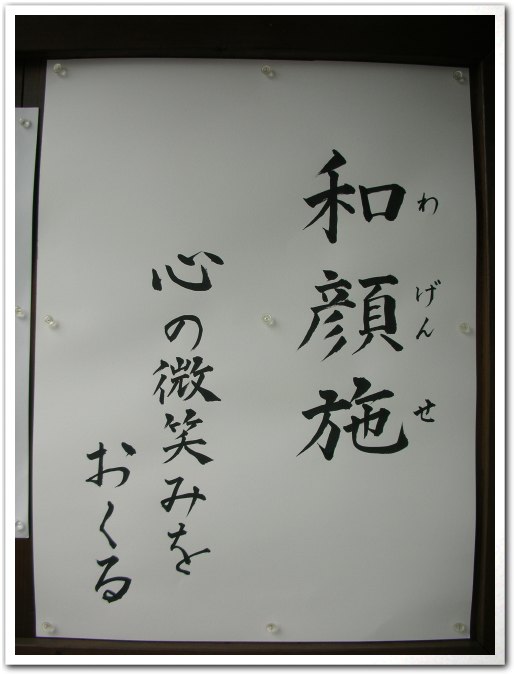 和顔施
わげんせ
心の微笑みを
おくる